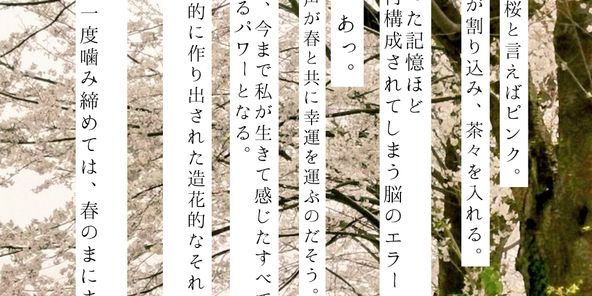 桜と言えばピンク。
が割り込み、茶々を入れる。
た記憶ほど
構成されてしまう脳のエラー
あっ。
が春と共に幸運を運ぶのだそう。
、今まで私が生きて感じたすべて
るパワーとなる。
的に作り出された造花的なそれ
一度噛み締めては、春のまにま